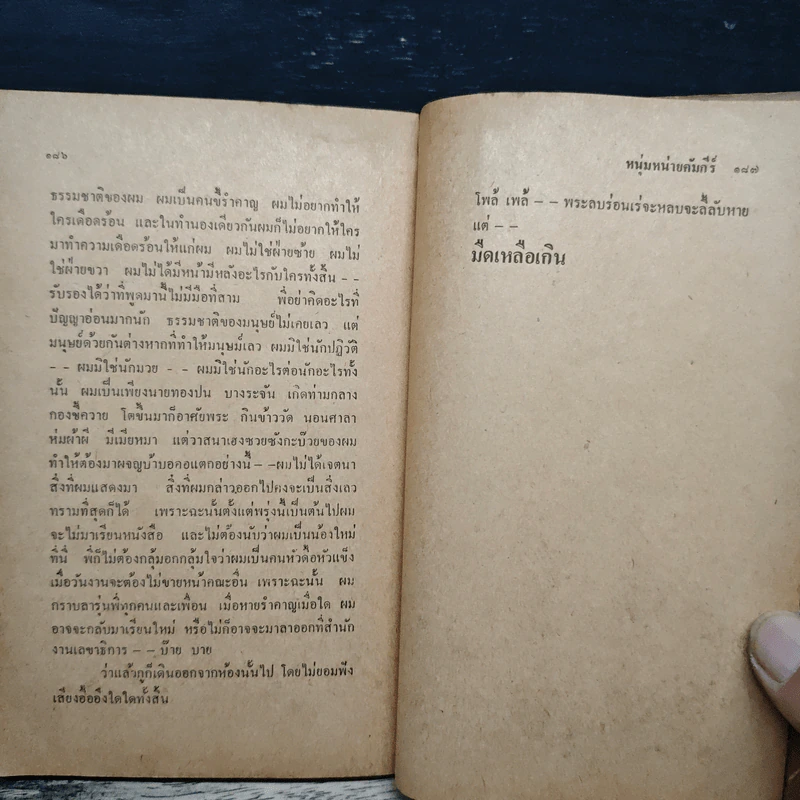 ๑๘๖
ธรรมชาติของผม ผมเป็นคนขี้รำคาญ ผมไม่อยากทำให้
ใครเดือดร้อน และในทำนองเดียวกันผมก็ไม่อยากให้ใคร
มาทำความเดือดร้อนให้แก่ผม ผมไม่ใช่ฝ่ายซ้าย ผมไม่
ใช่ฝ่ายขวา ผมไม่ได้มีหน้ามีหลังอะไรกับใครทั้งสิ้น - -
รับรองได้ว่าที่พูดมานี้ไม่มีมือที่สาม พี่อย่าคิดอะไรที่
บัญญาอ่อนมากนัก ธรรมชาติของมนุษย์ไม่เคยเลว แต่
มนุษย์ด้วยกันต่างหากที่ทำให้มนุษม์เลว ผมมิใช่นักปฏิวัติ
- - ผมมิใช่นักมวย - - ผมมิใช่นักอะไรต่อนักอะไรทั้ง
นั้น ผมเป็นเพียงนายทองปน บางระจัน เกิดท่ามกลาง
กองขี้ควาย โตขึ้นมาก็อาศัยพระ กินข้าววัด นอนศาลา
ห่มผ้าผี มีเมียหมา แต่วาสนาเฮงซวยซังกะบ๊วยของผม
ทำให้ต้องมาผจญบ้าบอคอแตกอย่างนี้ - -ผมไม่ได้เจตนา
สิ่งที่ผมแสดงมา สิ่งที่ผมกล่าวออกไปคงจะเป็นสิ่งเลว
ทรามที่สุดก็ได้ เพราะฉะนั้นตั้งแต่พรุ่งนี้เป็นต้นไปผม
จะไม่มาเรียนหนังสือ และไม่ต้องนับว่าผมเป็นน้องใหม่
ที่นี่ พี่ก็ไม่ต้องกลุ้มอกกลุ้มใจว่าผมเป็นคนหัวดื้อหัวแข็ง
เมื่อวันงานจะต้องไม่ขายหน้าคณะอื่น เพราะฉะนั้น ผม
กราบลารุ่นพี่ทุกคนและเพื่อน เมื่อหายรำคาญเมื่อใด ผม
อาจจะกลับมาเรียนใหม่ หรือไม่ก็อาจจะมาลาออกที่สำนัก
งานเลขาธิการ - - บ๊าย บาย
ว่าแล้วกูก็เดินออกจากห้องนั้นไป โดยไม่ยอมฟัง
เสียงอื้ออึงใดใดทั้งสิ้น
หนุ่มหน่ายคัมภีร์ ๑๘๗
โพล้ เพล้ - - พระลบร่อนเร่จะหลบจะลี้ลับหาย
แต่ - -
มืดเหลือเกิน